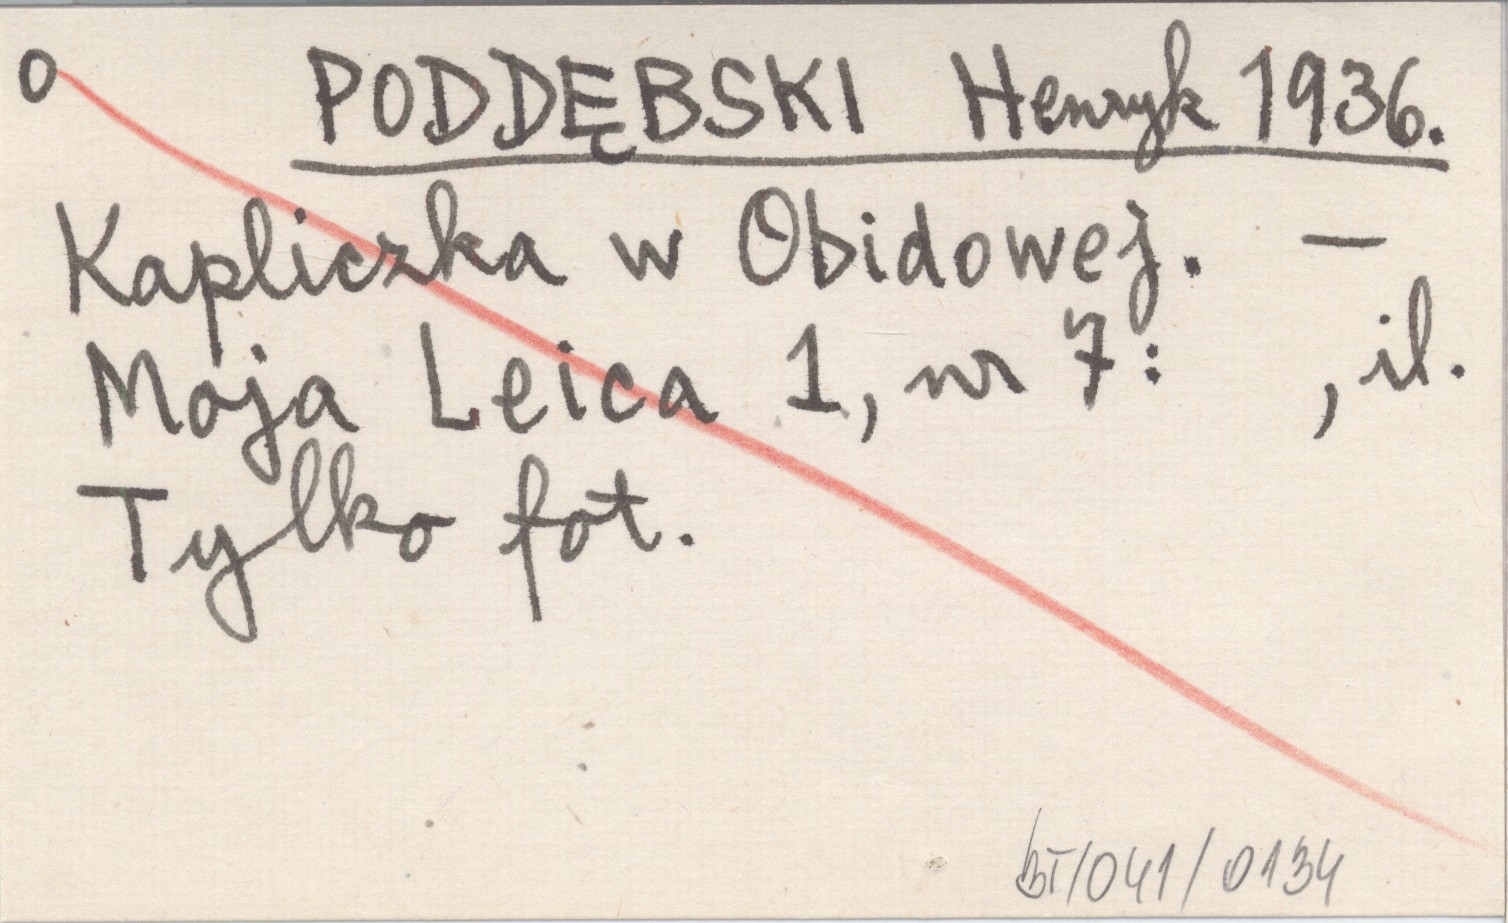 O PODDĘBSKI Henryk 1936.
Kapliczka w Obidowej. —
Moja Leica 1, nr 7: , il.
Tylko fot.
BT/041/0134